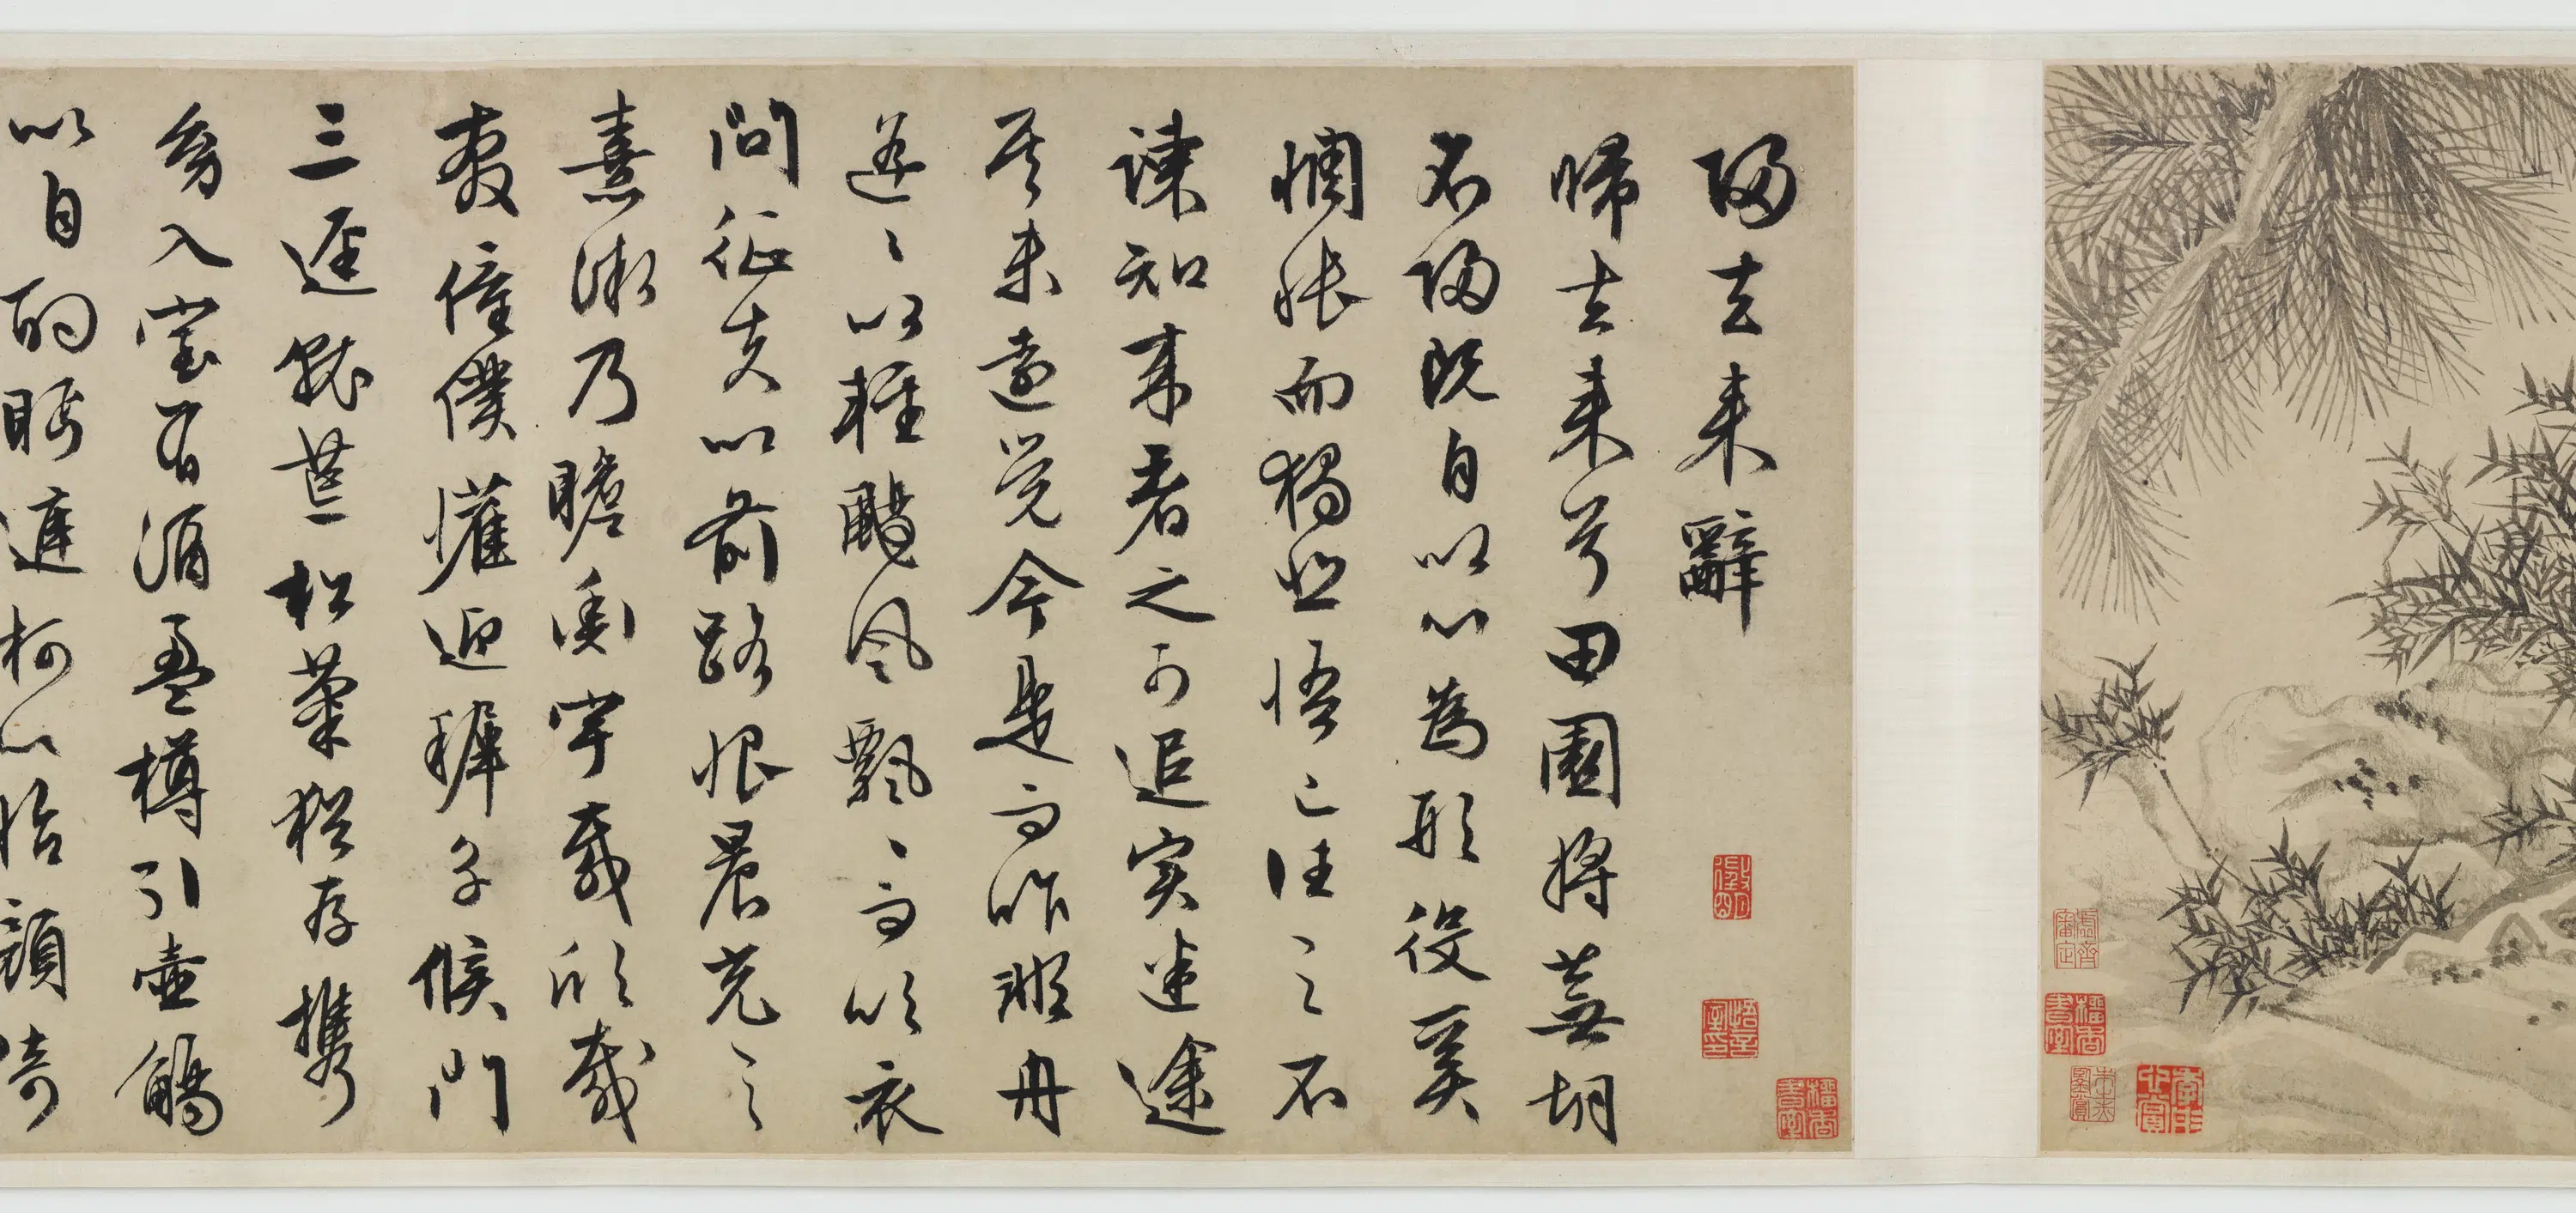 虛齋審定
歸去来辭
徵明
悟言室印
歸去来兮田園將蕪胡
不歸既自以心為形役奚
惆悵而獨悲悟已往之不
諫知来者之可追實迷途
其未遠覺今是而昨非舟
遥〻以輕颺風飄〻而吹衣
問征夫以前路恨晨光之
熹微乃瞻衡宇載欣載
奔僮僕懽迎稚子候門
三逕就荒松菊猶存攜
幼入室有酒盈樽引壺觴
以自酌眄庭柯以怡顔倚